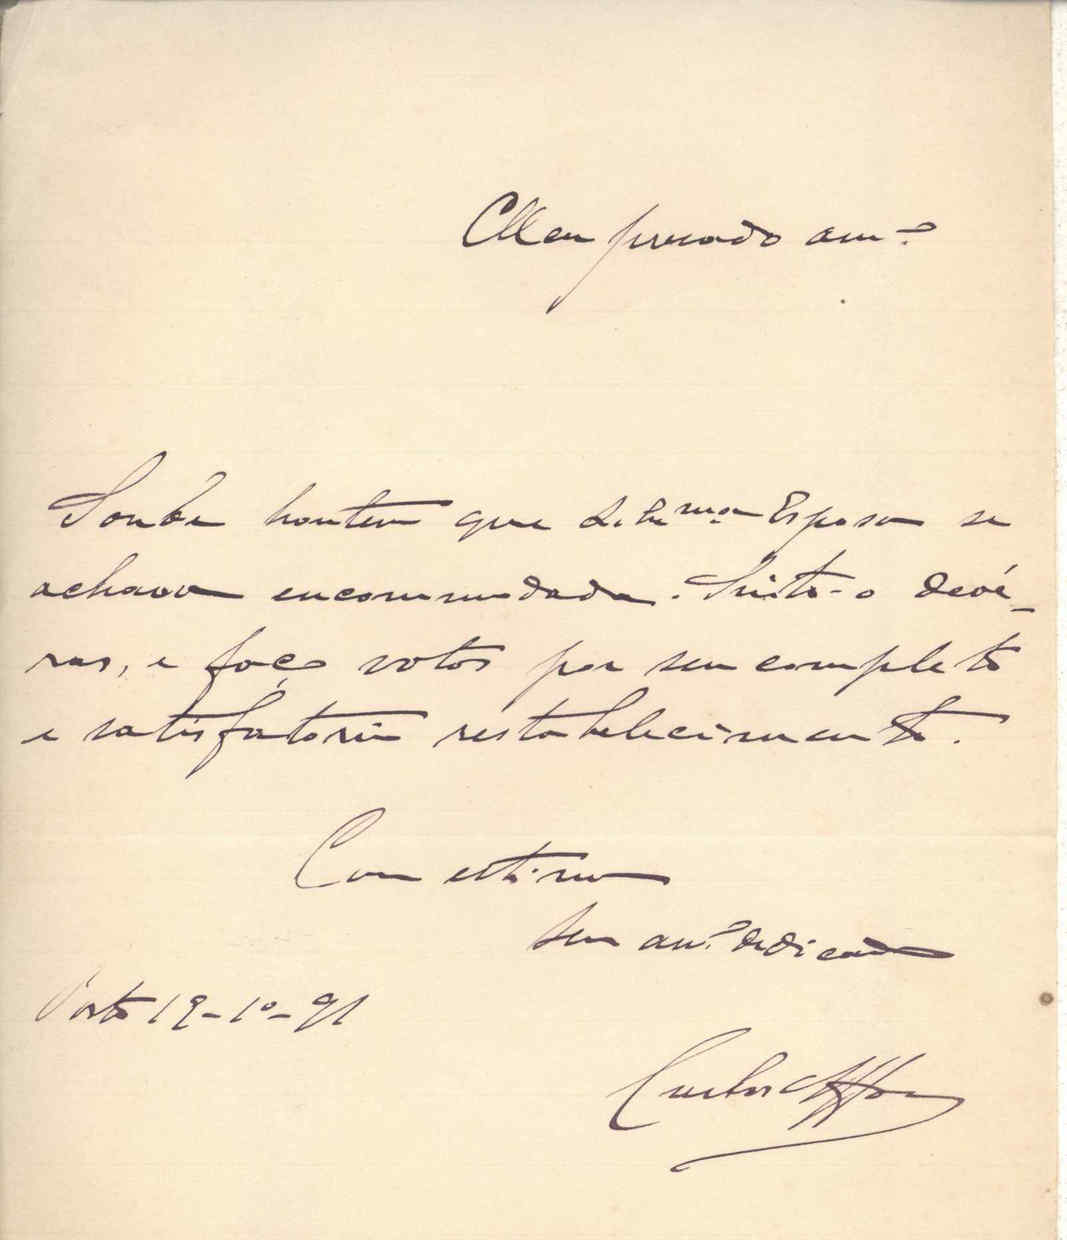 Meu presado am.º
Soube hontem que S. Ex.ma Esposa se
achava encommodada. Sinto-o devé-
ras, e faço votos por seu completo
e satisfatorio restabelecimento.
Com estima
Seu am.º dedicado
Porto 19-1º-91
Carlos Affon